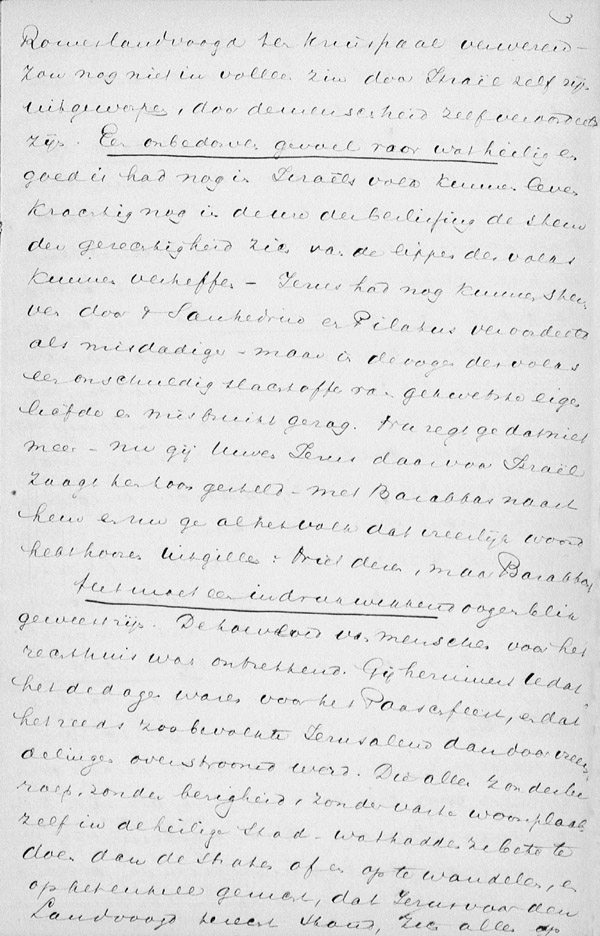 3
Romes landvoogd ter kruispaal verwezen -
zou nog niet in vollen zin door Israël zelf zijn
uitgeworpen, door de menscheid zelf veroordeeld
zijn. Een onbedorven gevoel voor wat heilig en
goed is had nog in Israëls volk kunnen leven
Krachtig nog in de ure der beslissing de stem
der gerechtigheid zich van de lippen des volks
kunnen verheffen - Jezus had nog kunnen ster
ven door 't Sanhedrin en Pilatus veroordeeld
als misdadiger - maar in de oogen des volks
een onschuldig slachtoffer van gekwetste eigen
liefde en misbruikt gezag. Nu zegt ge dat niet
meer - nu gij Uwen Jezus daar voor Israël
zaagt ten toon gesteld - met Barabbas naast
hem en nu ge al het volk dat vreeselijk woord
hebt hooren uitgillen: Niet dezen, maar Barabbas
Het moet een indrukwekkend oogenblik
geweest zijn. De hoeveelheid van menschen voor het
rechthuis was ontzettend. Gij herinnert U dat
het de dagen waren voor het Paaschfeest, en dat
het reeds zoo bevolkte Jerusalem dan door vreem
delingen overstroomd werd. Die allen zonder be
roep, zonder bezigheid, zonder vaste woonplaats
zelf in de heilige Stad - wat hadden ze beters te
doen dan de straten op en op te wandelen, en
op het enkele gerucht, dat Jezus voor den
Landvoogd terecht stond, zich allen op